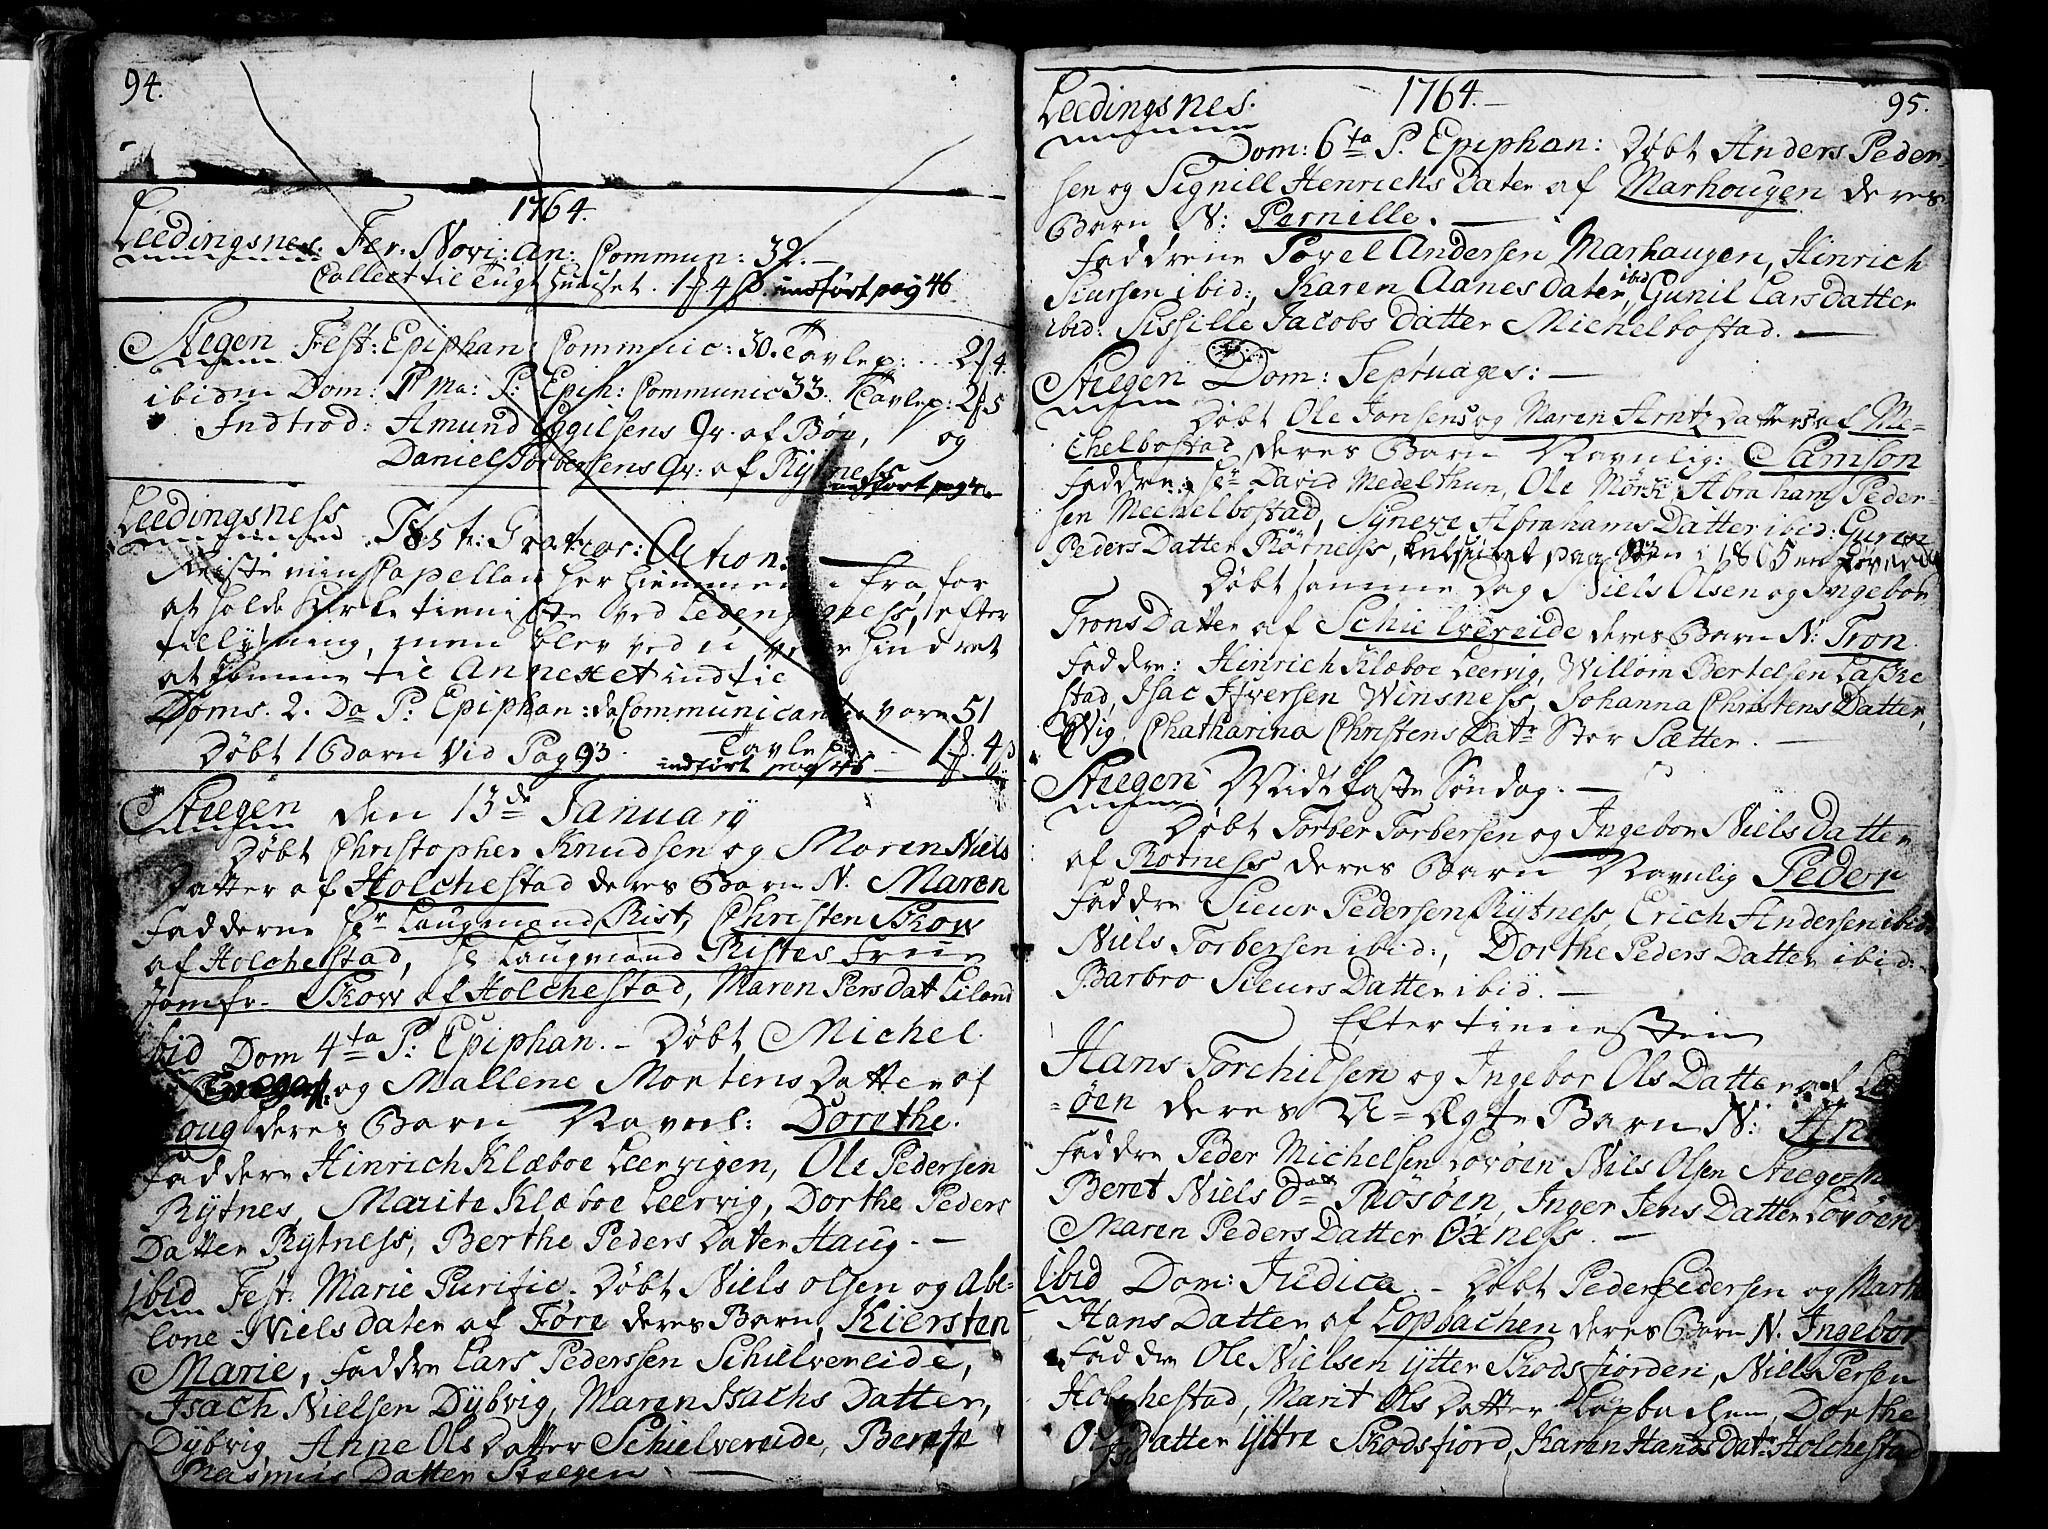 94.
1764.
Leedingsnes. Fer: Novi: an: Commun: 32. —
Collect til Tugthuuset. 1 ƒ 4 ß indført pag 46
Steegen Fest: Epiphan: Communic: 30. Tavlep: . . . 2 ƒ 4
ibidm Dom: 1ma: P: Epiph: Communic 33. Tavlep: 2 ƒ 5
Indtrod: Amund Eggilsens Qv. af Bøe, og
Daniel Torbersens Qv: af Rÿtness
indført pag
Leedingsness Fest: Gratiar: Action:
Reiste min Capellan her hiemmen fra, for
at holde Kirketieniste ved Ledingsness, efter
tillysning, men blev ved u-veyr hindret
at komme til Annexet indtil
Doms. 2. Da P: Epiphan: da Communicantes vare 51
Døbt 1 Barn Vid Pag 93. Tavlep - 1 ƒ. 4 ß
indført pag 45
Steegen den 13de Januarÿ
Døbt Christopher Knudsen og Maren Niels
Datter af Holchestad deres Barn N. Maren
Fadderne Hr Laugmand Rist, Christen Skow
af Holchestad, Hr Laugmand Ristes Frue
Jomfr. Skow af Holchestad, Maren Pers Dat Liland
ibid Dom 4ta P: Epiphan. — Døbt Michel
og Mallene Mortens Datter af
oug deres Barn Navnl: Dorethe.
Faddere Hinrich Klæboe Leervigen, Ole Pedersen
Rÿtnes, Marite Klæboe Leervig, Dorthe Peders
Datter Rÿtness, Berthe Peders Dater Haug. —
ibid Fest: Marie Purific. Døbt Niels Olsen og Abe-
lone Niels dater af Føre deres Barn, Kiersten
Marie, Faddre Lars Pederssen Schielvereide,
Isach Nielsen Dÿbvig, Maren Isachs Datter,
Dÿbvig, Anne Ols Datter Schielvereide, Berete
Rasmus Datter Steegen —
1764. —
95.
Leedingsnes.
Dom: 6ta P. Epiphan: Døbt Anders Peder-
sen og Signill Henrichs Dater af Marhougen deres
Barn N: Pernille. —
Faddrene Povel Andersen Marhaugen, Hinrich
Siursen ibid:, Karen Aanes Dater ibid, Gunil Lars datter
ibid: Sissille Jacobs datter Michelbostad. —
Steegen Dom: Septuages: —
Døbt Ole Jonsens og Maren Arntz Datters af Me-
chelbostad deres Barn Navnlig: Samson
Faddre: Hr David Medelthun, Ole Mørk, Abraham Peder-
sen Mechelbostad, Synere Abrahams Datter ibid: Guren
Peders Datter Rørness,
Døbt samme Dag Niels Olsen og Ingebor
Trons Datter af Schielvereide deres Barn N: Tron.
Faddre: Hinrich Klæboe Leervig, Willom Bertelsen Laskе
stad, Isac Iversen Winsness, Johanna Christens Datter,
Vig, Chatharina Christens Datr Stor Sætter. —
Steegen Midfaste Søndag. —
Døbt Torber Torbersen og Ingebor Niels Datter
af Rotness deres Barn Navnlig Peder
Faddre Sieur Pedersen Rÿtness, Erich Andersen ibid
Niels Torbersen ibid:, Dorthe Peders Datter ibid:
Barbro Sieurs Datter ibid. —
Efter tienesten
Hans Torchilsen og Ingebor Ols Datter af
øen deres U-Ægte Barn N:
Faddre Peder Michelsen Lovøen Niels Olsen
Beret Niels Dat Rosøen, Inger Jens Datter Lovøen
Maren Peders Datter Oxness. —
ibid Dom: Judica — Døbt Peder Pedersen og Marthe
Hans Datter af Lopbachen deres Barn N. Ingebor
Faddre Ole Nielsen ÿtter Skodsfiorden, Niels Persen
Holchestad, Marit Ols Datter Lopbachen, Dorthe
Ols Datter ÿttre Skodsfiord, Karen Hans Datr Holchestad